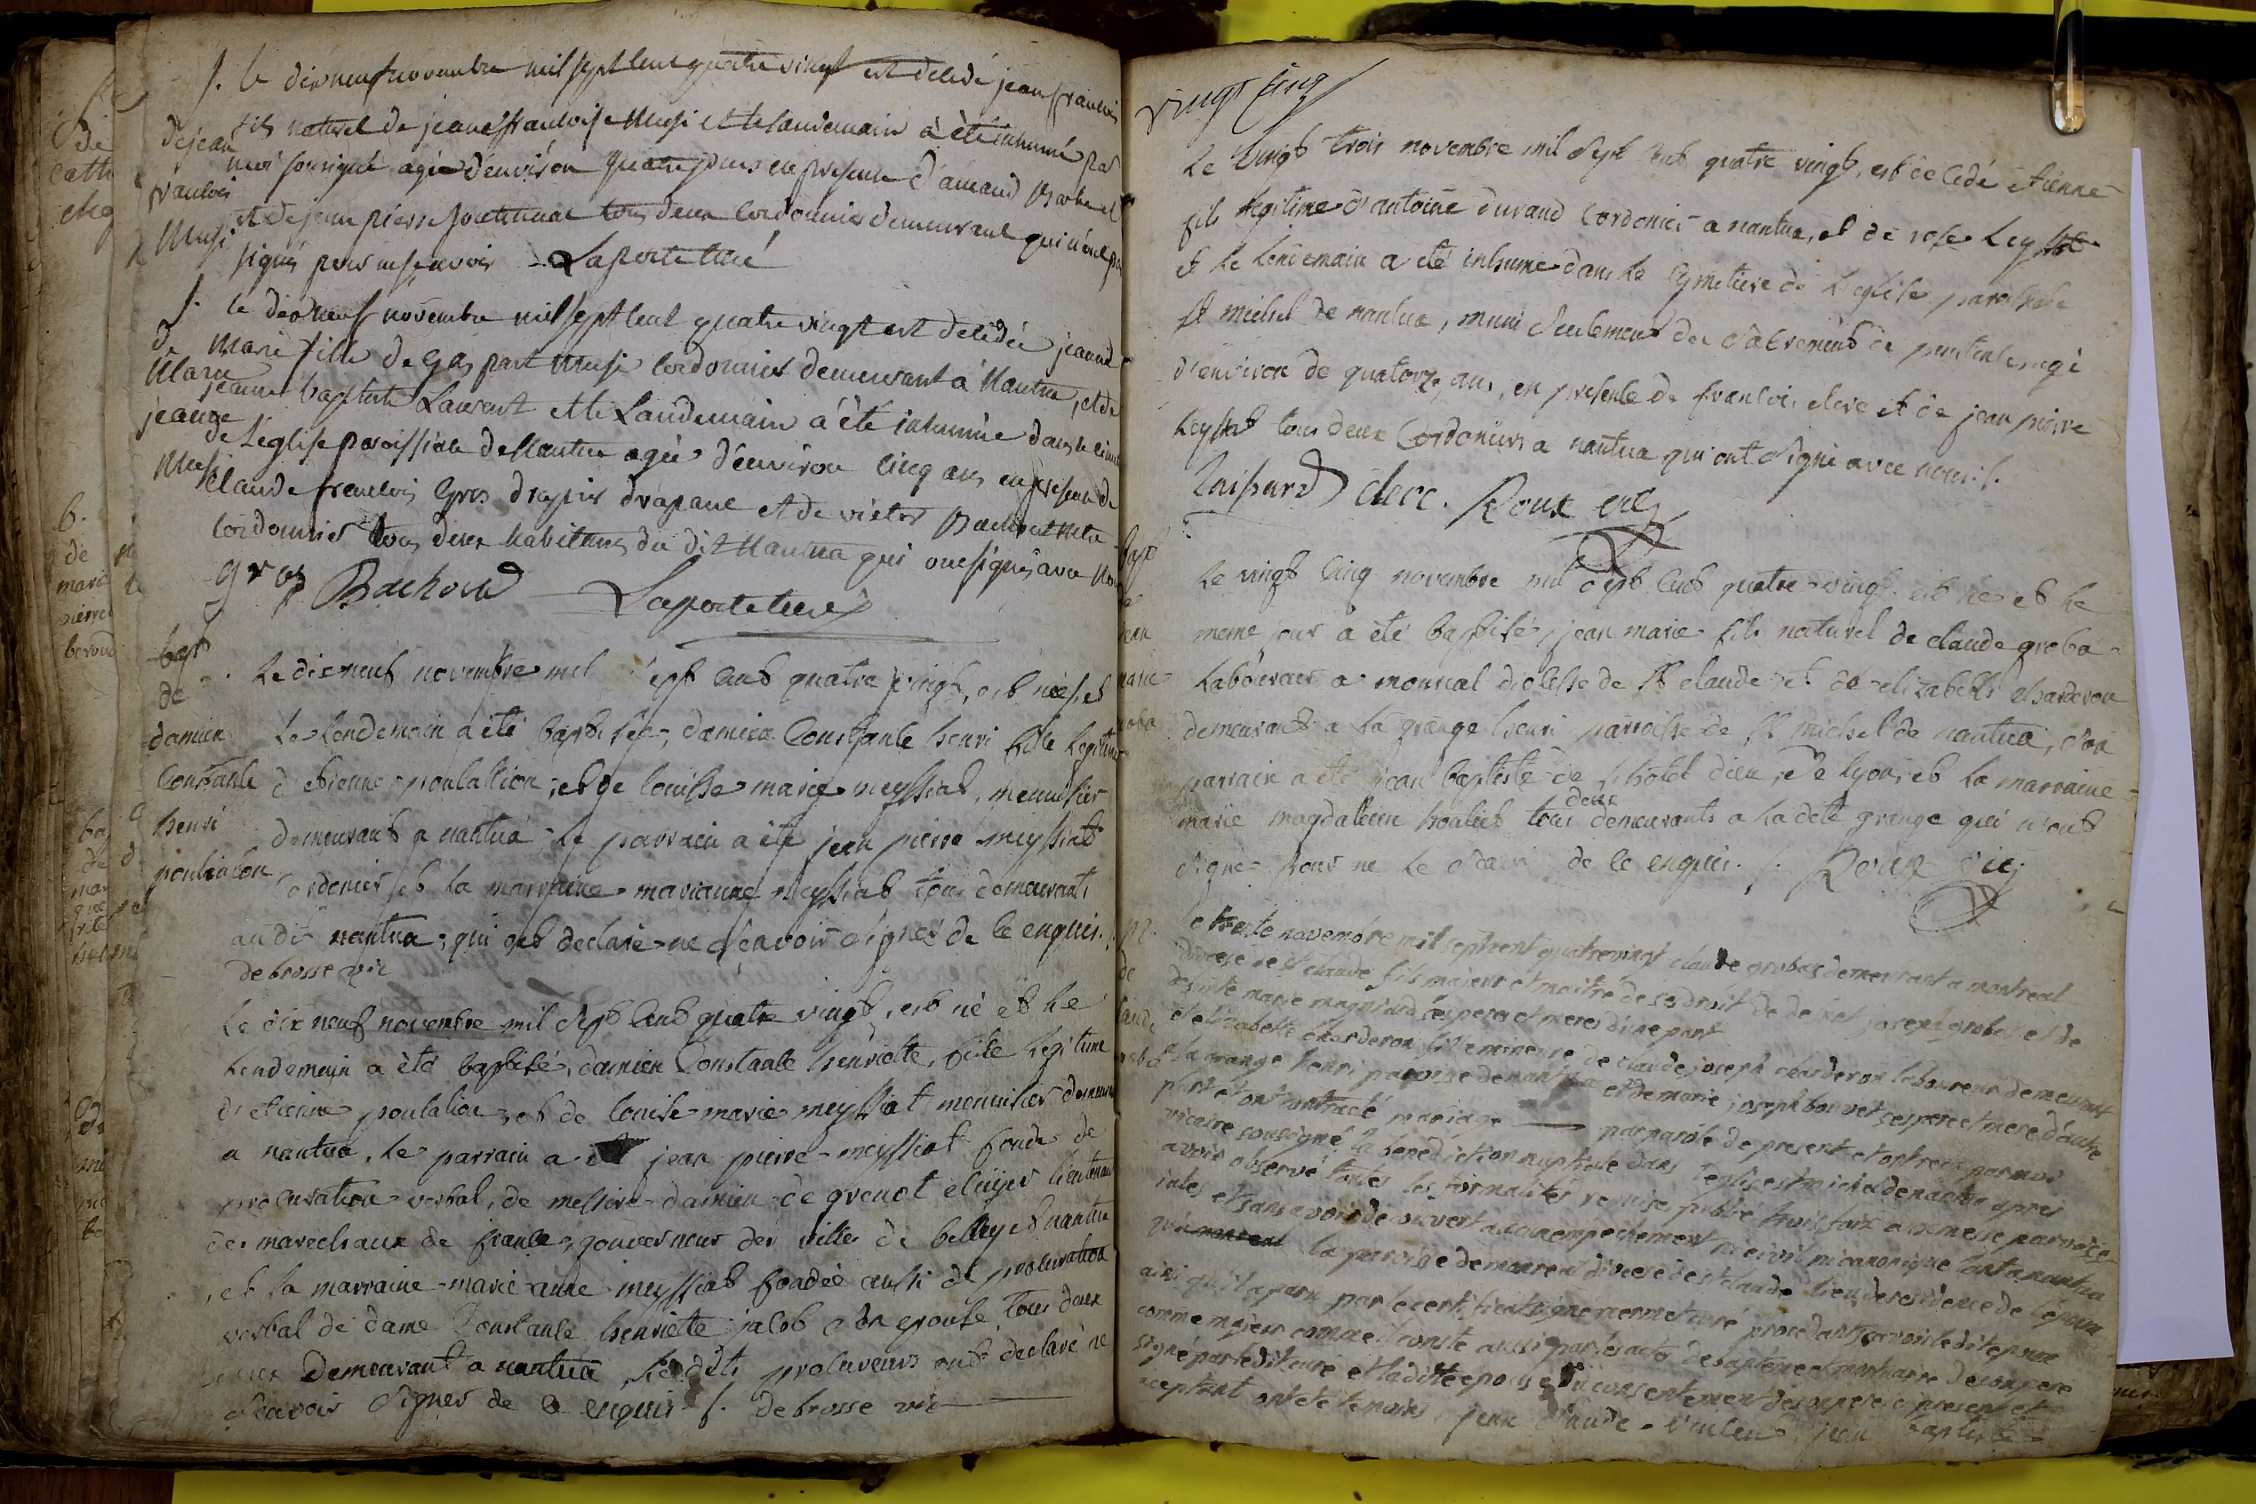 f. le dixneuf novembre mil sept cent quatre vingt est décédé jean francois
fils naturel de jeane francoise Musi et le landemain à été inhumé par
moi sousigné agée d'environ quatre jours en presence d'amand Barbe et
et de jean pierre tous deux cordonnier demeurant qui n'ont pu
signés pour ne sçavoir Laporte curé
de jean
francois
Musi
f. le dixneuf novembre mil sept cent quatre vingt est décédée jeanne
marie fille de Gaspart Musi cordonnier demeurant à Nantua, et de
jeanne baptiste Laurent et le Landemain à été inhumée dans le
de L'eglise paroissiale de Nantua agée d'environ cinq ans en presence de
claude francois Gros drapier drapant et de victor
cordonnier tous deux habitants du dit Nantua qui ont signés avec
gros Bachoud Laporte curé
de
Marie
jeanne
Musi
bapt
de
damien
Constante
henri
poulalion
Le dixneuf novembre mil sept cent quatre vingt, est née, et
Le Lendemain a été baptisée, damien Constante henri fille Legitime
d'etienne poulalion, et de Louise marie meyssiat, menuisier
demeurant a nantua Le parrain a été jean pierre meyssiat
Cordonier et La marraine marianne meyssiat tous demeurants
audit nantua, qui ont declaré ne sçavoir signer de ce enquis.
debrosse vic
Le dix neuf novembre mil sept cent quatre vingt, est né et Le
Lendemain a été baptisé, damien Constante henriette, fille Legitime
d'etienne poulalion, et de Louise marie meyssiat menuisier demeurant
a nantua, Le parrain a été jean pierre meyssiat fondé de
procuration verbal, de messire damien de grenot ecuyer lieutenant
des marechaux de france, gouverneur des villes de belley et nantua
, et La marraine marie anne meyssiat fondée aussi de procuration
verbal de dame Constante henriette jacob son epouse, tous deux
demeurant a nantua Lesdits procureurs ont declaré ne
sçavoir signer de ce enquis f. debrosse vic
vingt cinq
Le vingt trois novembre mil sept cent quatre vingt, est décédé etienne
fils Legitime d'antoine durand Cordonier a nantua, et de rose Leyssat
et Le lendemain a été inhumé dans Le Cymetiere de L'eglise paroissiale
st michel de nantua, muni seulement du sacrement de penitence agé
d'environ de quatorze ans, en presence de francois clerc et de jean pierre
Leyssat tous deux Cordoniers a nantua qui ont signé avec nous f.
clerc. Roux vic
Le vingt cinq novembre mil sept cent quatre vingt est né et Le
meme jour a été baptisé, jean marie fils naturel de claude groba
Laboureur a monreal diocesse de st claude et de elizabeth charderon
demeurant a La grange henri parroisse de st michel de nantua, son
parrain a été jean baptiste de L'hotel dieu de Lyon, et La marraine
marie magdaleine tous deux demeurants a La dete grange qui n'ont
signé pour ne Le sçavoir de ce enquis. f. Roux vic
Le trente novembre mil sept cent quatre vingt claude grobas demeurant a montreal
diocese de st claude fils majeur et maitre de ses droit de defunt joseph grobas et de
defunte marie magniard ses pere et mere d'une part
et elizabette charderon fille mineure de claude joseph charderon laboureur demeurant
a la grange henri paroisse de nantua et de marie joseph bouvet ses pere et mere d'autre
part et ont contracté mariage par parole de present et ont recu par moi
vicaire sousigné la benediction nuptiale dans l'eglise st michel de nantua apres
avoir observé toutes les formalités requise publié trois fois a la messe paroissiale
et sans avoir decouvert aucun empechement ni civil ni canonique tant a nantua
qu'a la paroisse de monreal diocese de st claude lieu de residence de l'epoux
ainsi qu'il a paru par le certificat signé mermet curé procedant savoir le dit epoux
comme majeur comme il conste aussi par les acte de bapteme et mortuaire de son pere
signé par le dit curé et la dite epouse du consentement de son pere ci present et
aceptant ont été temoins jean claude jean baptiste